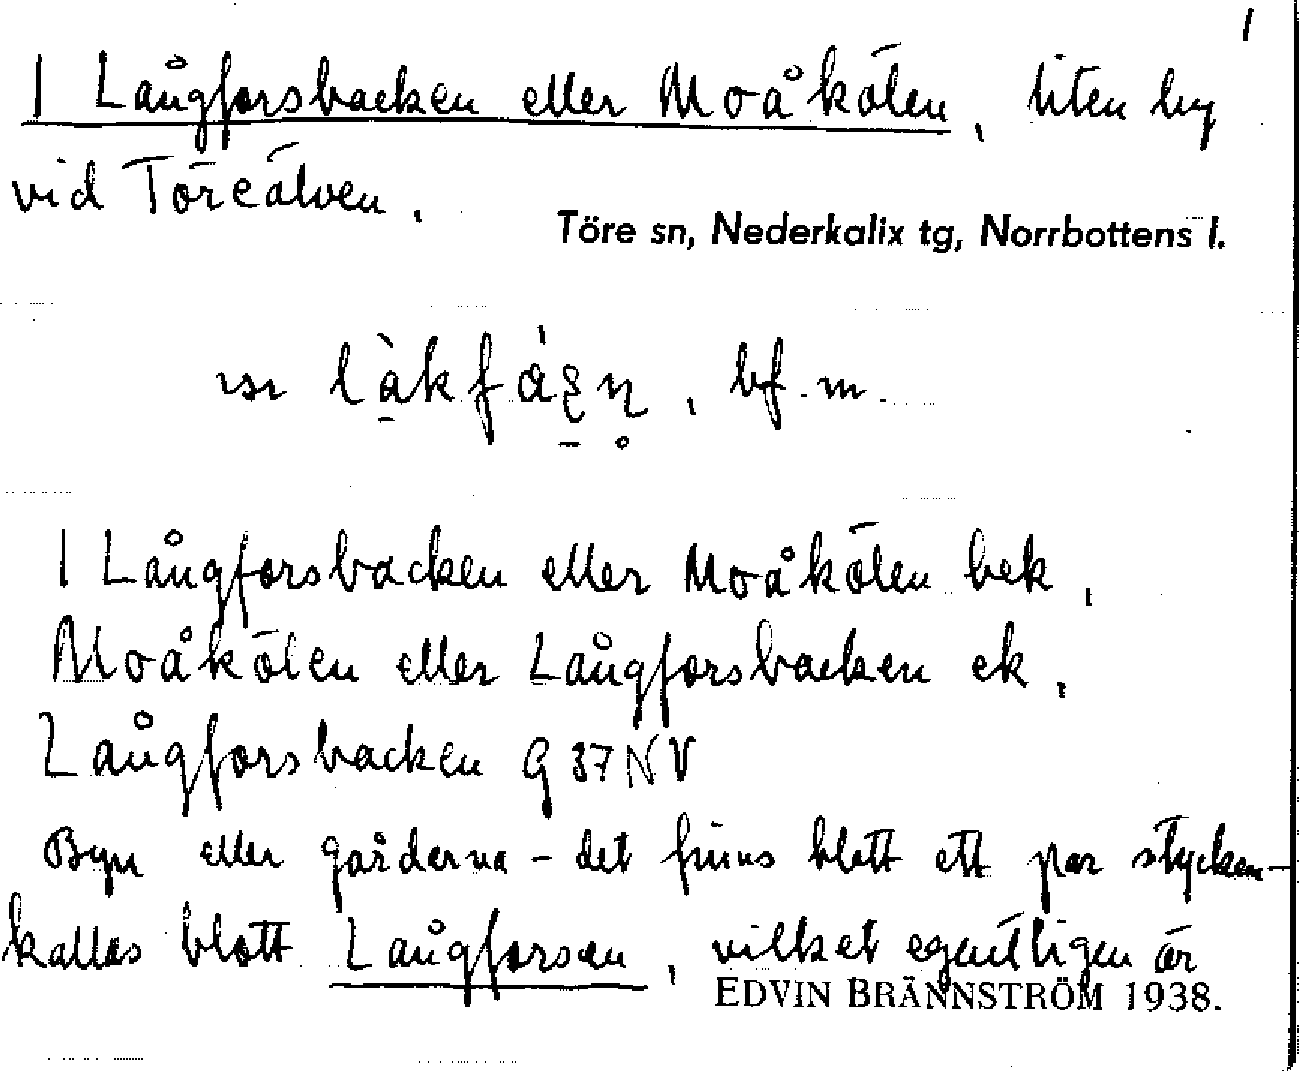 1
1 Långforsbacken eller Moåkölen, liten by
vid Töreälven.
Töre sn, Nederkalix tg, Norrbottens l.
bf. m.
1 Långforsbacken eller Moåkölen bek,
Moåkölen eller Långforsbacken ek,
Långforsbacken G 37 NV
Byn eller gårderna - det finns blott ett par stycken -
kallas blott Långforsen, vilket egentligen är
EDVIN BRÄNNSTRÖM 1938.